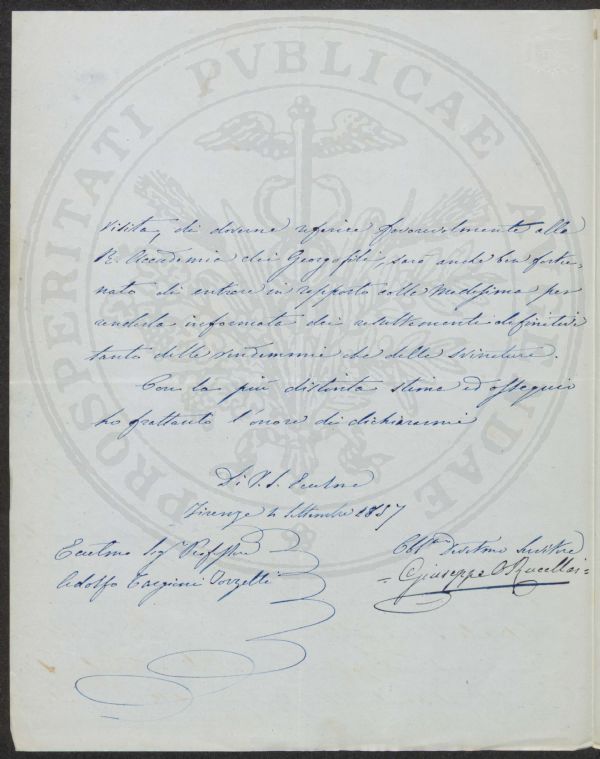 PROSPERITATI PVBLICAE AVGENDAE
visita, di doverne riferire favorevolmente alla
R. Accademia dei Georgofili, sarò anche ben fortu-
nato di entrare in rapporto colla Medesima per
renderla informata dei resultamenti definitivi
tanto delle vendemmie che delle svinature.
Con la più distinta stima ed ossequio
ho frattanto l'onore di dichiararmi
Di V. S. Eccelma
Firenze 4 Settembre 1857
Eccelmo Sig Professore
Adolfo Targioni Tozzetti
Obbmo Devotmo Servitore
= Giuseppe O Rucellai =